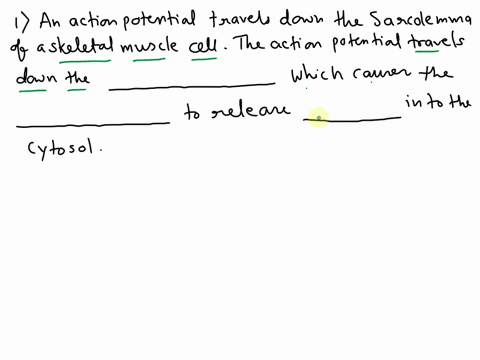 1) An action potential travels down the Sarcolemma
of a skeletal muscle cell. The action potential travels
down the __________ which causes the
__________ to release ________ in to the
cytosol.